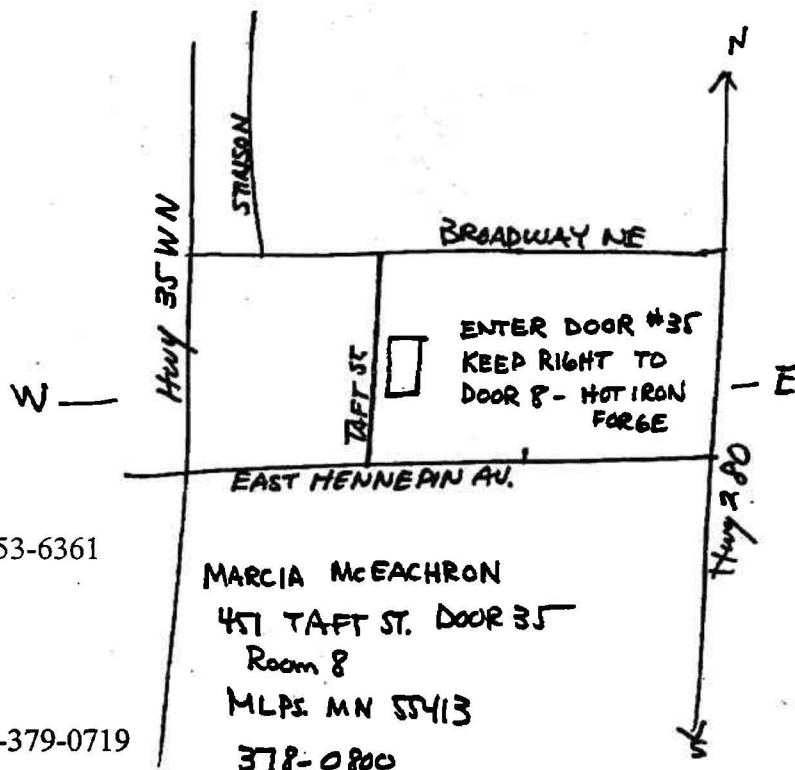 N
STINSON
Hwy 35 WN
BROADWAY NE
ENTER DOOR #35
KEEP RIGHT TO
DOOR 8 - HOT IRON
FORGE
W
E
TAFT ST
EAST HENNEPIN AV.
Hwy 280
53-6361
MARCIA McEACHRON
451 TAFT ST. DOOR 35
Room 8
MLPS. MN 55413
-379-0719
378-0800
S